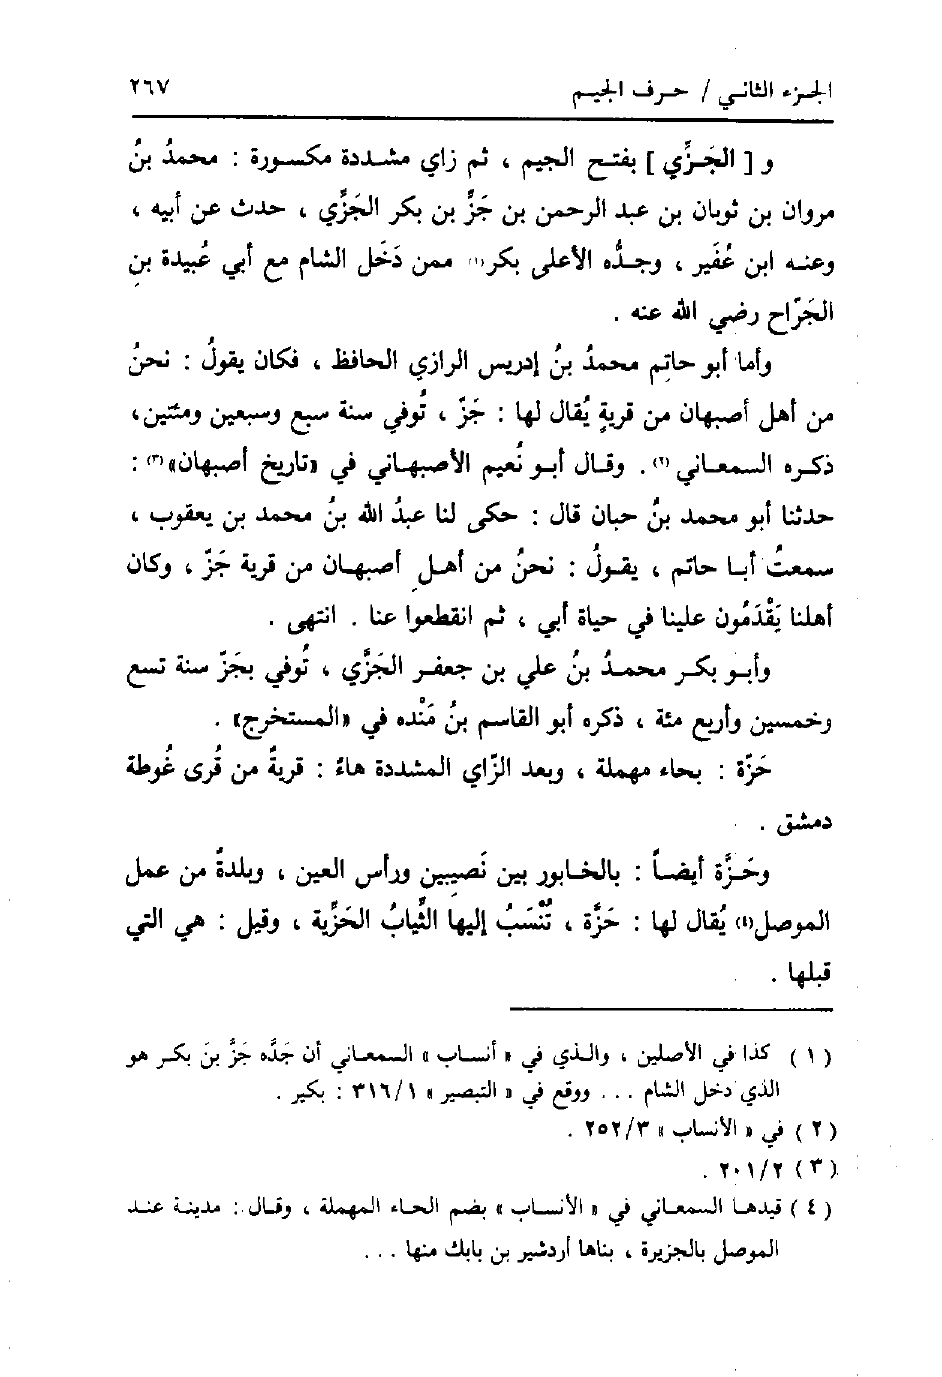 الجزء الثاني / حرف الجيم ٢٦٧
و [ الجَزِّي ] بفتح الجيم ، ثم زاي مشددة مكسورة : محمدُ بنُ
مروان بن ثوبان بن عبد الرحمن بن جَزِّ بن بكر الجَزِّي ، حدث عن أبيه ،
وعنه ابن عُفَير ، وجدُّه الأعلى بكر(١) ممن دَخَل الشام مع أبي عُبيدة بنِ
الجَرّاح رضي الله عنه .
وأما أبو حاتِم محمدُ بنُ إدريس الرازي الحافظ ، فكان يقولُ : نحنُ
من أهل أصبهان من قريةٍ يُقال لها : جَزّ ، تُوفي سنة سبع وسبعين ومئتين ،
ذكره السمعاني(٢) . وقال أبو نُعيم الأصبهاني في «تاريخ أصبهان»(٣) :
حدثنا أبو محمد بنُ حبان قال : حكى لنا عبدُ الله بنُ محمد بن يعقوب ،
سمعتُ أبا حاتم ، يقولُ : نحنُ من أهلِ أصبهان من قرية جَزّ ، وكان
أهلنا يَقْدَمُون علينا في حياة أبي ، ثم انقطعوا عنا . انتهى .
وأبو بكر محمدُ بنُ علي بن جعفر الجَزِّي ، تُوفي بجَزّ سنة تسع
وخمسين وأربع مئة ، ذكره أبو القاسم بنُ مَنْده في «المستخرج» .
حَزّة : بحاء مهملة ، وبعد الزّاي المشددة هاءٌ : قريةٌ من قُرى غُوطة
دمشق .
وحَزَّة أيضاً : بالخابور بين نَصِيبين ورأس العين ، وبلدةٌ من عمل
الموصل(٤) يُقال لها : حَزَّة ، تُنْسَبُ إليها الثِّيابُ الحَزِّية ، وقيل : هي التي
قبلها .
( ١ ) كذا في الأصلين ، والذي في « أنساب » السمعاني أن جَدَّه جَزَّ بنَ بكر هو
الذي دخل الشام ... ووقع في « التبصير » ٣١٦/١ : بكير .
( ٢ ) في « الأنساب » ٢٥٢/٣ .
( ٣ ) ٢٠١/٢ .
( ٤ ) قيدها السمعاني في « الأنساب » بضم الحاء المهملة ، وقال : مدينة عند
الموصل بالجزيرة ، بناها أردشير بن بابك منها ...